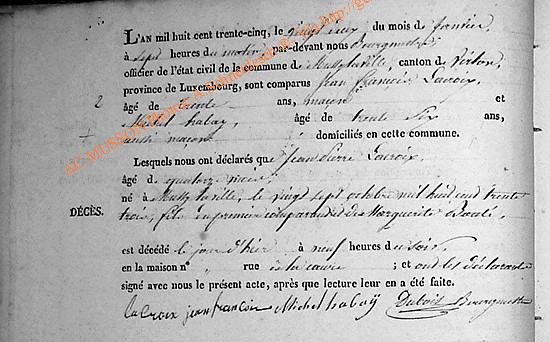 L'AN mil huit cent trente-cinq, le vingt deux du mois de janvier,
à sept heures du matin, par-devant nous Bourgmestre
officier de l'état civil de la commune de Mussy-la-ville, canton de Virton,
province de Luxembourg, sont comparus Jean François Lacroix,
2 âgé de trente ans, maçon et
Michel habay, âgé de trente six ans,
+ aussi maçon domiciliés en cette commune.
Lesquels nous ont déclarés que Jean Pierre Lacroix,
âgé de quatorze mois,
né à Mussy-la-ville, le vingt sept octobre mil huit cent trente
DÉCÈS. trois, fils du premier comparant et de Marguerite
est décédé le jour d'hier à neuf heures du soir,
en la maison n° rue ; et ont les déclarants
signé avec nous le présent acte, après que lecture leur en a été faite.
lacroix jean françois Michel habaÿ Dubois Bourgmestre
AC-MUSSON